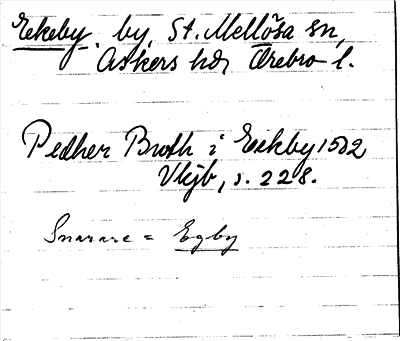 Ekeby. by, St. Mellösa sn,
Askers hd, Örebro l.
Pedher Broth i Eekby 1582
Vljb, s. 228.
Snarare = Egby